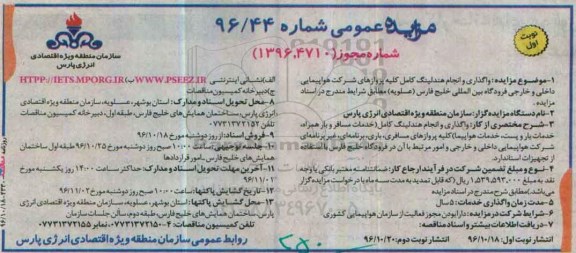 مزایده عمومی شماره ۹۶/۴۴
شماره مجوز (۱۳۹۶.۴۷۱۰)
نوبت اول
سازمان منطقه ویژه اقتصادی
انرژی پارس
۱-موضوع مزایده: واگذاری و انجام هندلینگ کامل کلیه پروازهای شرکت هواپیمایی
داخلی و خارجی فرودگاه بین المللی خلیج فارس (عسلویه) مطابق شرایط مندرج در اسناد
مزایده.
۲-نام دستگاه مزایده گزار: سازمان منطقه ویژه اقتصادی انرژی پارس
۳-شرح مختصری از کار: واگذاری و انجام هندلینگ کامل (خدمات مسافر و بار همراه،
خدمات بار و پست، خدمات هواپیما) کلیه پروازهای مسافری، باری، برنامه ای، غیر برنامه ای
شرکت هواپیمایی داخلی و خارجی و امور مرتبط با آن در فرودگاه خلیج فارس با استفاده
از تجهیزات استاندارد.
۴-نوع و مبلغ تضمین شرکت در فرآیند ارجاع کار: ضمانتنامه معتبر بانکی یا وجه
نقد به مبلغ ۱،۵۲۹،۵۳۲،۰۰۰ ریال (که قابل تمدید به مدت سه ماه با درخواست مزایده گزار
می باشد) مطابق شرح مندرج در اسناد مزایده
۵-مدت زمان واگذاری خدمات: ۵ سال
۶-شرایط شرکت در مزایده: دارا بودن مجوز فعالیت از سازمان هواپیمایی کشوری
۷-دریافت اطلاعات بیشتر و اسناد مناقصه:
انتشار نوبت اول: ۹۶/۱۰/۱۸ انتشار نوبت دوم: ۹۶/۱۰/۲۰
الف) نشانی اینترنتی WWW.PSEEZ.IR ب) HTPP://IETS.MPORG.IR
ج) دبیرخانه کمیسیون مناقصات
۸-محل تحویل اسناد و مدارک: استان بوشهر، عسلویه، سازمان منطقه ویژه اقتصادی
انرژی پارس، ساختمان همایش های خلیج فارس، طبقه اول، دبیرخانه کمیسیون مناقصات
تلفن ۰۷۷۳۱۳۷۲۱۵۲
۹-فروش اسناد: از روز دوشنبه مورخ ۹۶/۱۰/۱۸
۱۰-جلسه توجیهی: ساعت ۱۰:۰۰ صبح روز دوشنبه مورخ ۹۶/۱۰/۲۵ طبقه اول ساختمان
همایش های خلیج فارس، امور قراردادها
۱۱-آخرین مهلت تحویل اسناد و مدارک: حداکثر ساعت ۱۴:۰۰ روز یکشنبه مورخ
۹۶/۱۱/۰۱
۱۲-تاریخ گشایش پاکتها: ساعت ۱۰:۰۰ صبح روز دوشنبه مورخ ۹۶/۱۱/۰۲
۱۳-محل گشایش پاکتها: استان بوشهر، عسلویه، سازمان منطقه ویژه اقتصادی انرژی
پارس، ساختمان همایش های خلیج فارس، طبقه دوم، سالن جلسات سازمان
تلفن کمیسیون مناقصات ۰۷۷۳۱۳۷۲۱۵۲-۴ نمابر: ۰۷۷۳۱۳۷۷۱۵۵
روابط عمومی سازمان منطقه ویژه اقتصادی انرژی پارس